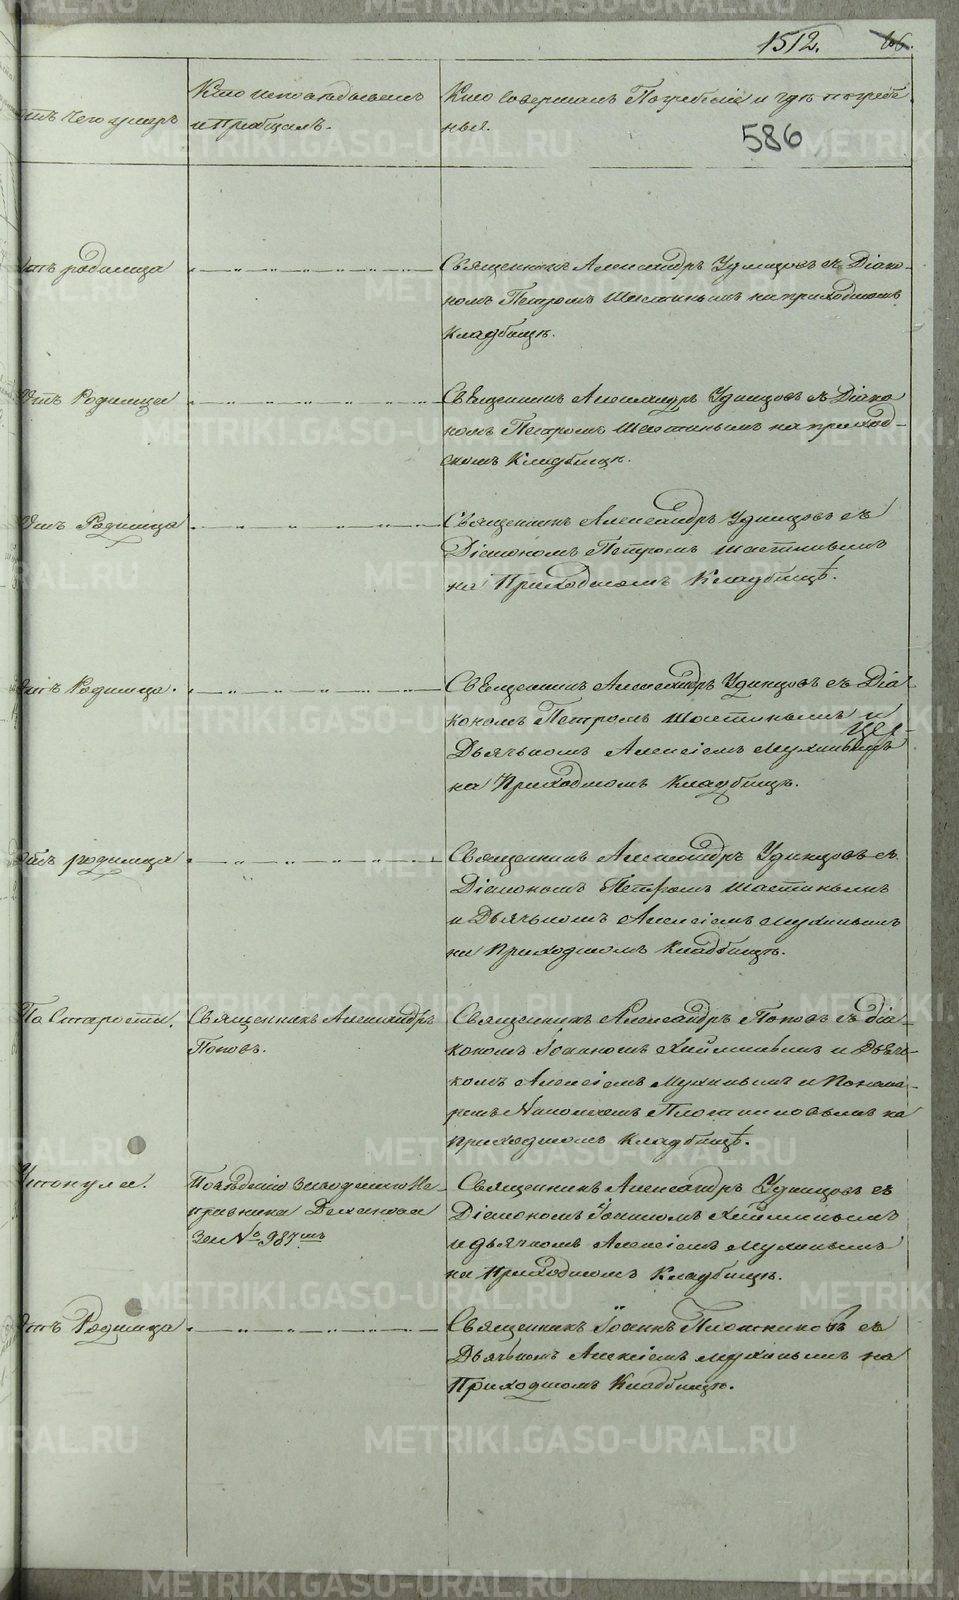 1512. 66.
Отъ чего умеръ
Кто исповѣдывалъ
и Пріобщалъ.
Кто Совершалъ Погребеніе и гдѣ погребе
ны.
586
Отъ родимца
Священникъ Александръ Удинцовъ съ Діако-
номъ Петромъ Шастинымъ на приходскомъ
Кладбищѣ.
Отъ Родимца
Священникъ Александръ Удинцовъ съ Діако
номъ Петромъ Шастинымъ на приход-
скомъ Кладбищѣ.
Отъ Родимца
Священникъ Александръ Удинцовъ съ
Діакономъ Петромъ Шастинымъ
на Приходскомъ Кладбищѣ.
Отъ Родимца.
Священникъ Александръ Удинцовъ съ Діа-
кономъ Петромъ Шастинымъ и
Дьячкомъ Алексіемъ Мухинымъ
на Приходскомъ Кладбищѣ.
Отъ родимца
Священникъ Александръ Удинцовъ съ
Діакономъ Петромъ Шастинымъ
и Дьячкомъ Алексіемъ Мухинымъ
на Приходскомъ Кладбищѣ.
По Старости.
Священникъ Александръ
Поповъ.
Священникъ Александръ Поповъ съ діа-
кономъ Іоанномъ и Дьяч-
комъ Алексіемъ Мухинымъ и Понома-
ремъ Николаемъ на
приходскомъ Кладбищѣ.
Утонула.
По вѣденію Ис
правника
За № 987мъ
Священникъ Александръ Удинцовъ съ
Діакономъ Іоанномъ
и дьячкомъ Алексіемъ Мухинымъ
на Приходскомъ Кладбищѣ.
Отъ Родимца
Священникъ Іоаннъ Плотниковъ съ
Дьячкомъ Алексіемъ Мухинымъ на
Приходскомъ Кладбищѣ.
METRIKI.GASO-URAL.RU